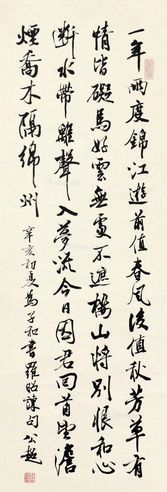 一年兩度錦江遊前值春風後值秋芳草有
情皆礙馬好雲無處不遮樓山將別恨和心
斷水帶離聲入夢流今日因君回首望澹
煙喬木隔綿州
辛亥初夏為子和書羅昭諫句 公超